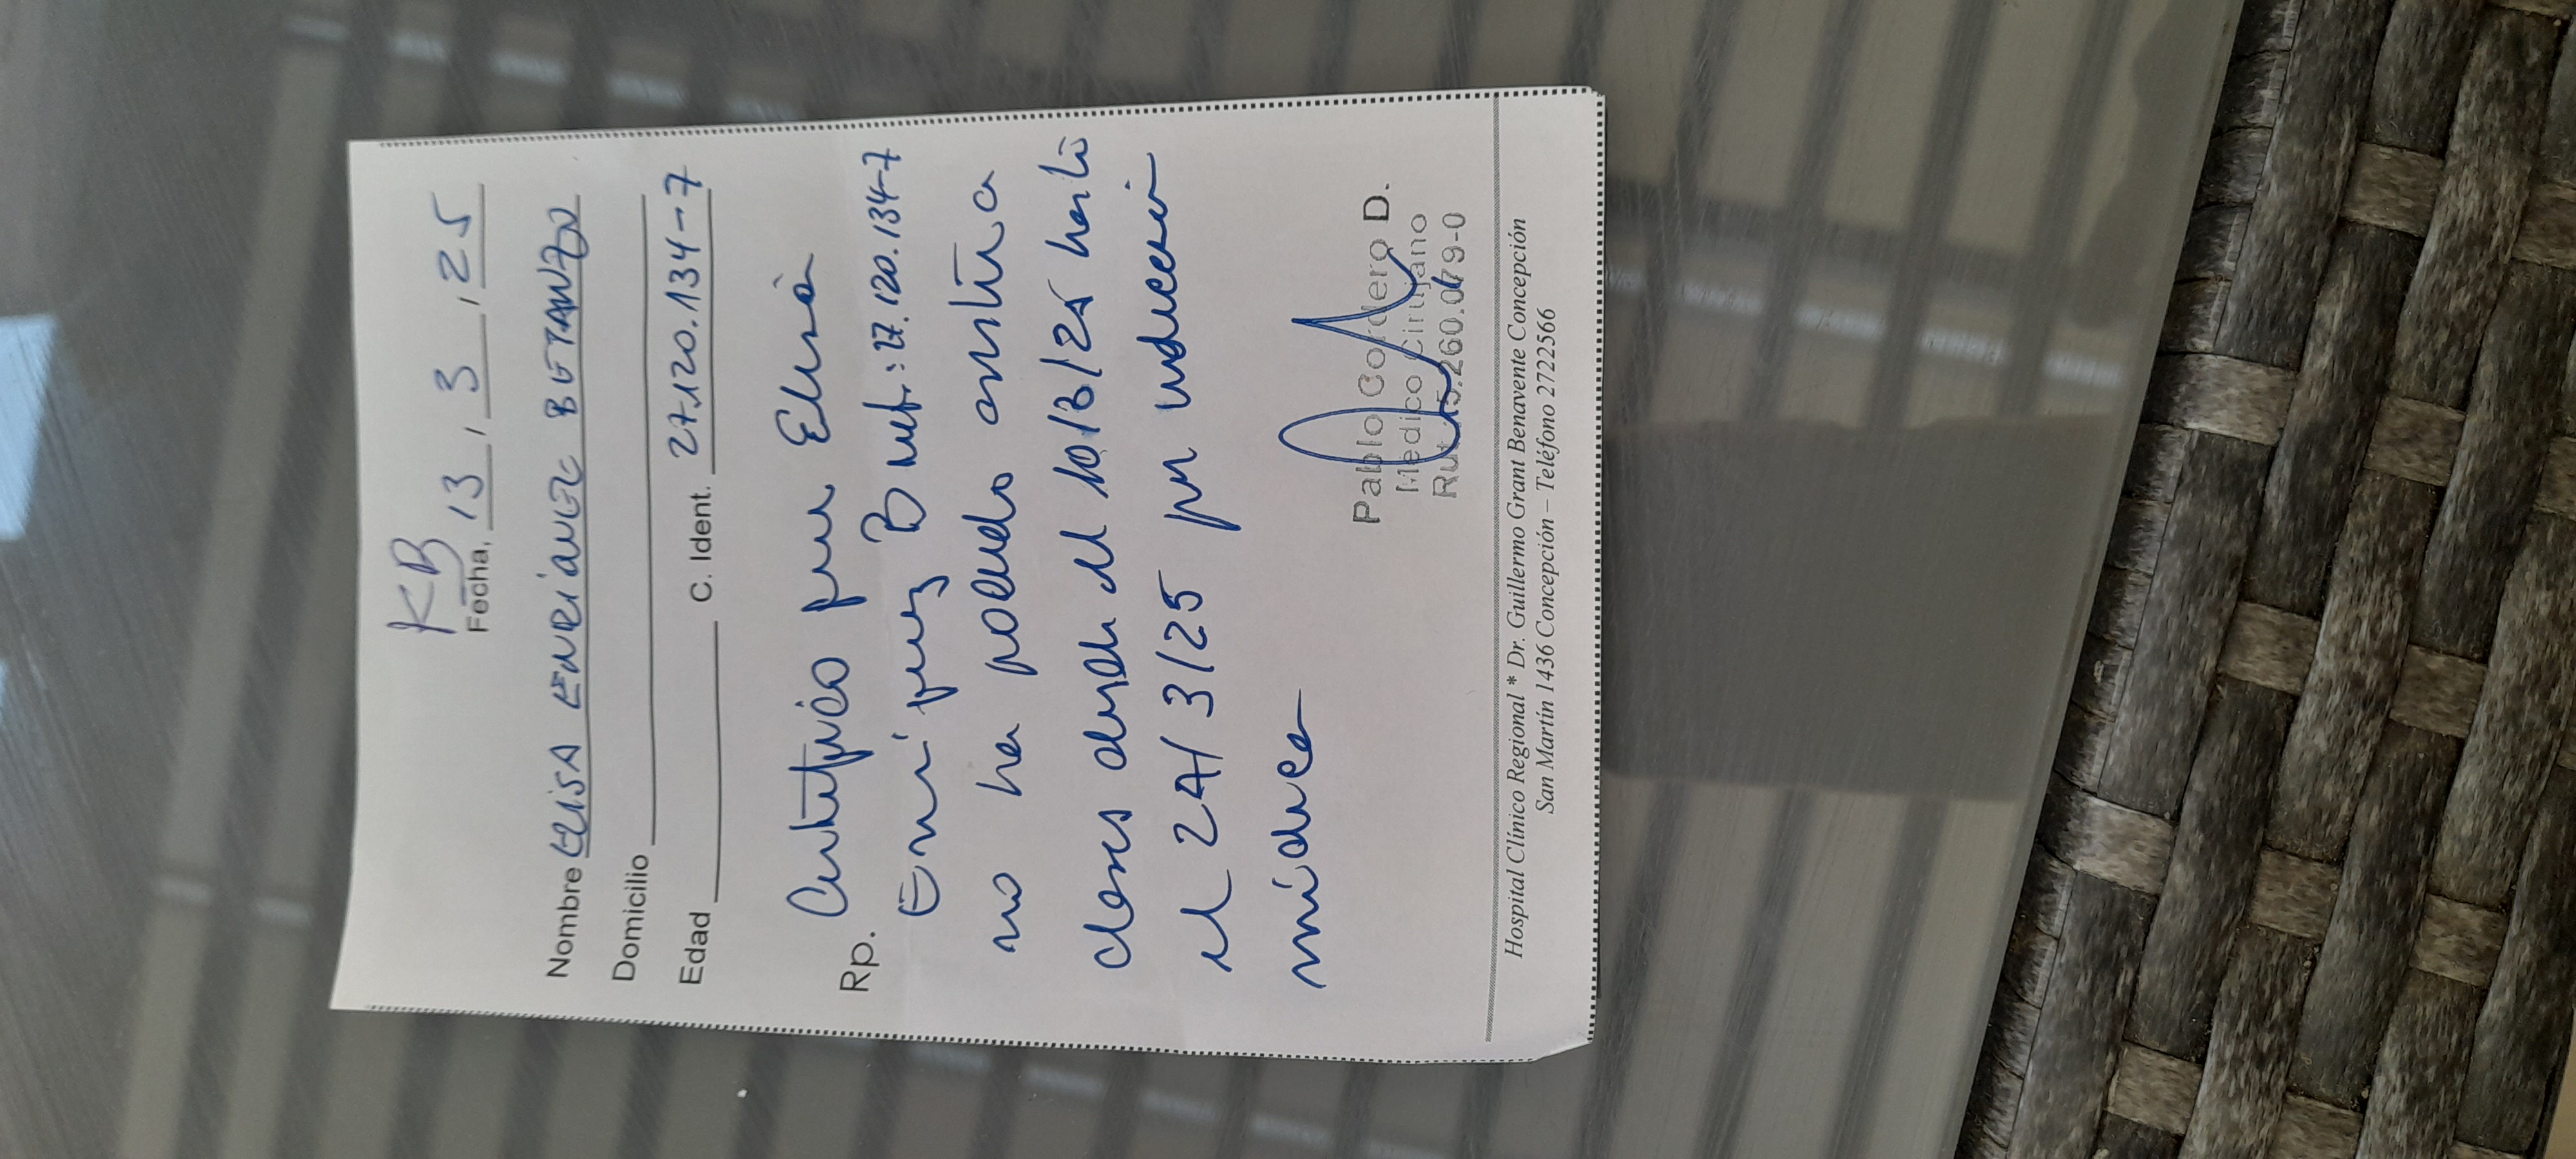 KB
Fecha, 13, 3, 25
Nombre ELISA ENRÍQUEZ BETANZO
Domicilio
Edad C. Ident. 27.120.134-7
Rp.
Certifico que Elisa
B rut.: 27.120.134-7
no ha podido asistir a
clases desde el 10/3/25 hasta
el 24/3/25 por indicación
médica
Pablo Cordero D.
Médico Cirujano
Rut: 5.260.079-0
Hospital Clínico Regional * Dr. Guillermo Grant Benavente Concepción
San Martín 1436 Concepción – Teléfono 2722566